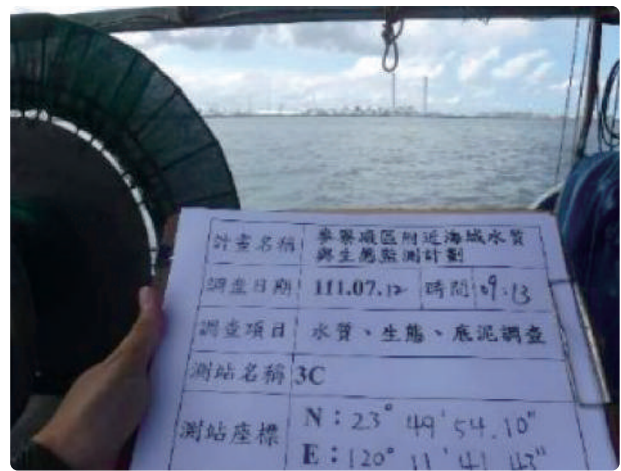 計畫名稱 麥寮廠區附近海域水質
與生態監測計劃
調查日期 111.07.12 時間 09:13
調查項目 水質、生態、底泥調查
測站名稱 3C
測站座標 N：23° 49' 54.10"
E：120° 11' 41.43"